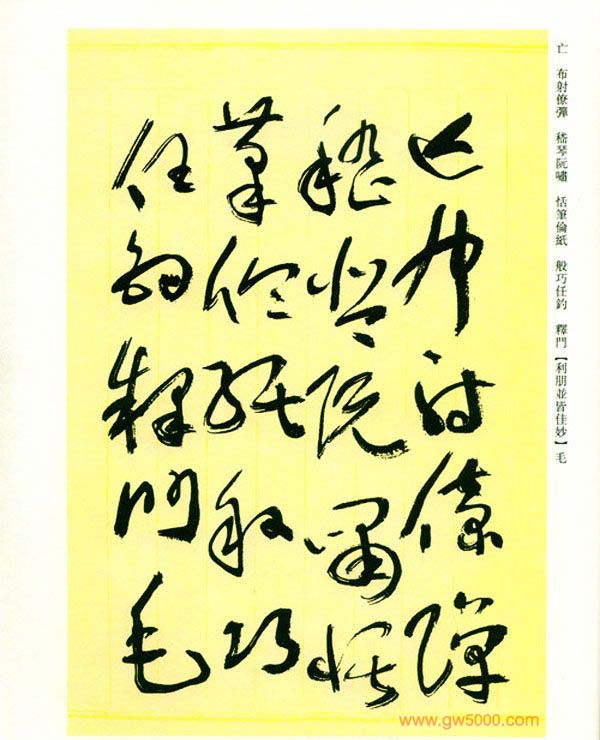 亡 布射僚彈 嵇琴阮嘯 恬筆倫紙 般巧任釣 釋門【利朋並皆佳妙】毛
亡布射僚彈
嵇琴阮嘯恬
筆倫紙般巧
任釣釋門毛
www.gw5000.com